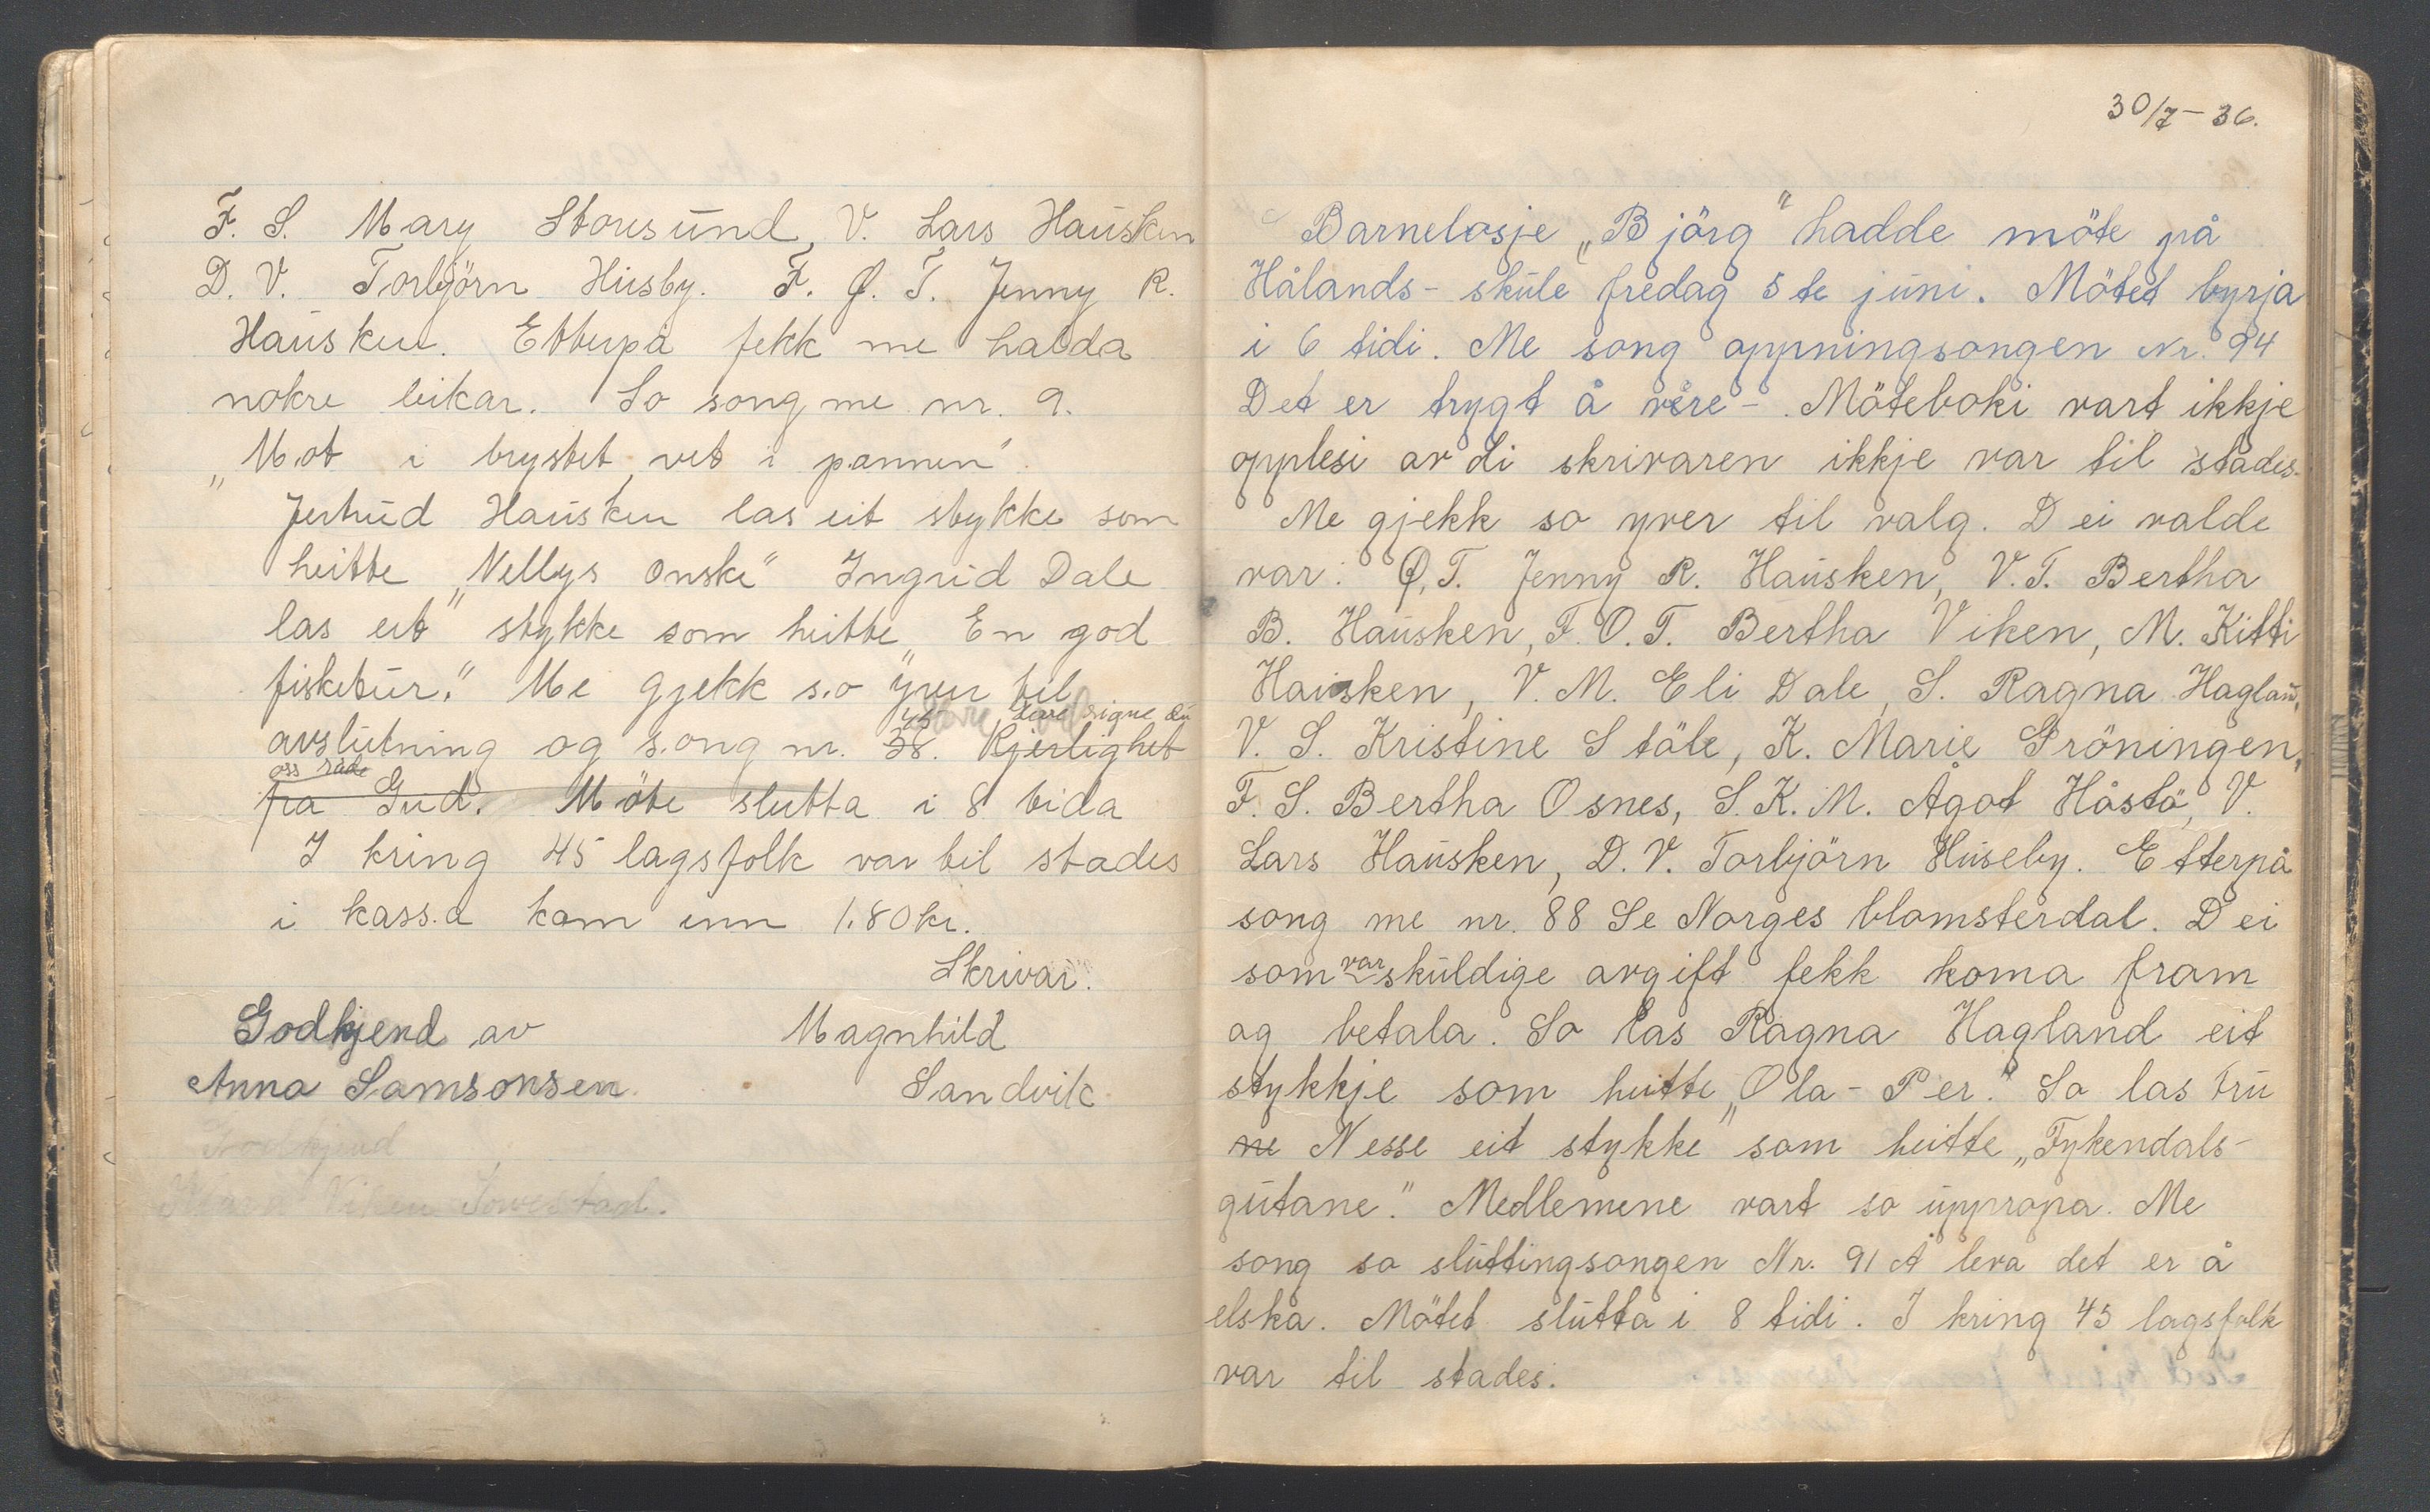 F. S. Mary Storesund, V. Lars Hausken
D. V. Torbjörn Húsby. F. Ø. T. Jenny R.
Haúsken. Etterpå fekk me halda
nokre leikar. So song me nr. 9.
„Mot i brystet, vet i pannen".
Jertrúd Haúsken las eit stykke som
heitte „Nellys onske" Ingrid Dale
las eit stykke som heitte „En god
fisketúr." Me gjekk so yver til
avslútning og song nr. 38. Kjerlighet
45 signe dú
oss råde
fra Gud. Möte slutta i 8 tida
I kring 45 lagsfolk var til stades
i kassa kom inn 1.80 kr.
Skrivar.
Godkjend av Magnhild
Anna Samsonsen. Sandvik
Godkjend
Viken
30/7-36.
Barnelosje „Björg" hadde möte på
Hålands-skúle fredag 5te júni. Mötet byrja
i 6 tidi. Me song oppningsongen Nr. 94
Det er trygt å være-. Möteboki vart ikkje
opplesi av di skrivaren ikkje var til stades.
Me gjekk so yver til valg. Dei valde
var: Ø.T. Jenny R. Haúsken, V.T. Bertha
B. Haúsken, F.O.T. Bertha Viken, M. Kitti
Haúsken, V. M. Eli Dale, S. Ragna Haglan,
V. S. Kristine Stöle, K. Marie Gröningen,
F. S. Bertha Osnes, S.K.M. Ågot Håstö, V.
Lars Haúsken, D.V. Torbjörn Húseby. Etterpå
song me nr. 88 Se Norges blomsterdal. Dei
som var skúldige avgift fekk koma fram
og betala. So las Ragna Hagland eit
stykkje som heitte „Ola-Per." So las frú
ne Nesse eit stykke som heitte „Fykendals-
gútane." Medlemene vart so úppropa. Me
song so slúttingsongen Nr. 91 Å leva det er å
elska. Mötet slútta i 8 tidi. I kring 45 lagsfolk
var til stades.